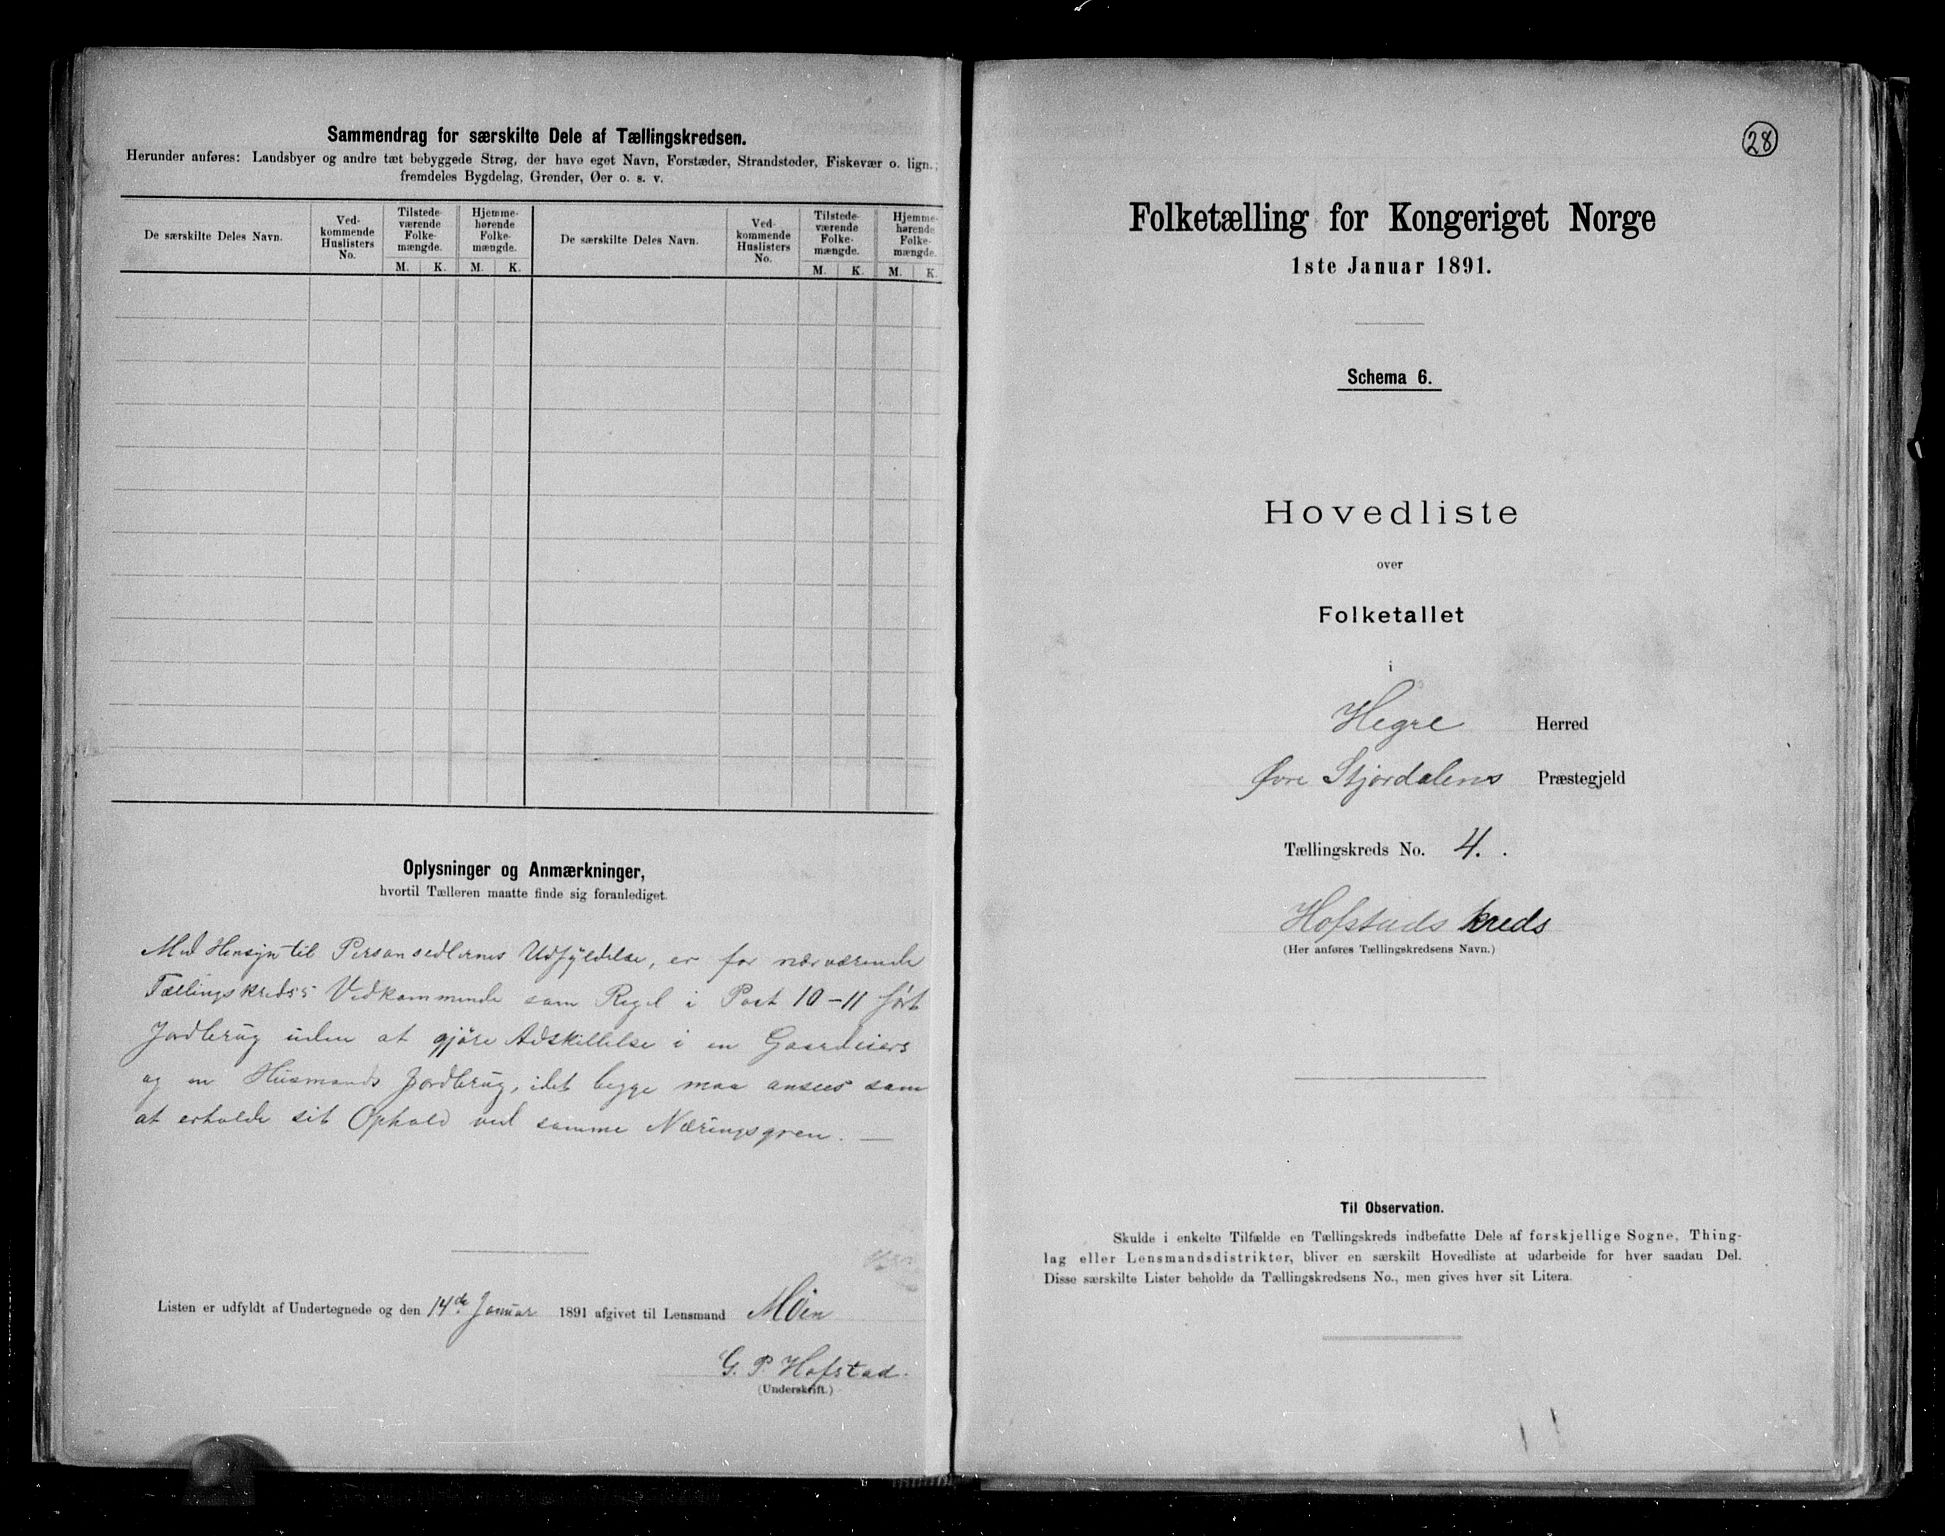 Sammendrag for særskilte Dele af Tællingskredsen.
Herunder anføres: Landsbyer og andre tæt bebyggede Strøg, der have eget Navn, Forstæder, Strandsteder, Fiskevær o. lign.,
fremdeles Bygdelag, Grender, Øer o. s. v.
De særskilte Deles Navn.
Ved-
kommende
Huslisters
No.
Tilstede-
værende
Folke-
mængde.
Hjemme-
hørende
Folke-
mængde.
M. K. M. K.
De særskilte Deles Navn.
Ved-
kommende
Huslisters
No.
Tilstede-
værende
Folke-
mængde.
Hjemme-
hørende
Folke-
mængde.
M. K. M. K.
Oplysninger og Anmærkninger,
hvortil Tælleren maatte finde sig foranlediget.
Med Hensyn til Personsedlernes Udfyldelse, er for nærværende
Tællingskreds's Vedkommende som Regel i Post 10-11 ført
Jordbrug uden at gjöre Adskillelse i en Gaardeiers
og en Husmands Jordbrug, idet begge maa ansees som
at erholde sit Ophold ved samme Næringsgren. —
Listen er udfyldt af Undertegnede og den 14de Januar 1891 afgivet til Lensmand Möen
G. P. Hofstad.
(Underskrift.)
28
Folketælling for Kongeriget Norge
1ste Januar 1891.
Schema 6.
Hovedliste
over
Folketallet
i
Hegre Herred
Øvre Stjørdalens Præstegjeld
Tællingskreds No. 4.
Hofstads kreds
(Her anføres Tællingskredsens Navn.)
Til Observation.
Skulde i enkelte Tilfælde en Tællingskreds indbefatte Dele af forskjellige Sogne, Thing-
lag eller Lensmandsdistrikter, bliver en særskilt Hovedliste at udarbeide for hver saadan Del.
Disse særskilte Lister beholde da Tællingskredsens No., men gives hver sit Litera.